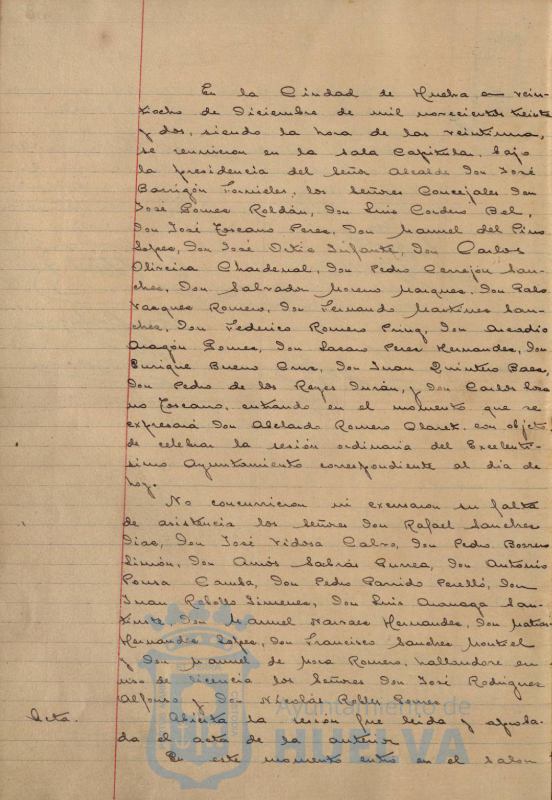 En la Ciudad de Huelva a vein-
tiocho de Diciembre de mil novecientos treinta
y dos, siendo la hora de las veintiuna,
se reunieron en la sala Capitular, bajo
la presidencia del Señor Alcalde Don José
Barrigón Fornieles, los Señores Concejales Don
José Gomez Roldán, Don Luis Cordero Bel,
Don José Toscano Perez, Don Manuel del Pino
Lopez, Don José Ortiz Infante, Don Carlos
Oliveira Chardenal, Don Pedro Cerrejón San-
chez, Don Salvador Moreno Marquez, Don Pablo
Vazquez Romero, Don Fernando Martinez San-
chez, Don Federico Romero Don Arcadio
Aragón Gomez, Don Lazaro Perez Hernandez, Don
Enrique Bueno Cruz, Don Juan Quintero Baez,
Don Pedro de los Reyes Durán, y Don Carlos Loza
no Toscano, entrando en el momento que se
expresará Don Abelardo Romero Claret, con objeto
de celebrar la sesión ordinaria del Excelentí-
simo Ayuntamiento correspondiente al dia de
hoy.
No concurrieron ni excusaron su falta
de asistencia los Señores Don Rafael Sanchez
Diaz, Don José Vidosa Calvo, Don Pedro Borrero
Limón, Don Amós Sabrás Gurrea, Don Antonio
Pousa Camba, Don Pedro Garrido Perelló, Don
Juan Rebollo Jimenez, Don Luis Don Manuel Narvaez Hernandez, Don
Hernandez Lopez, Don Francisco Sanchez
y Don Manuel de Mora Romero, hallandose en
uso de licencia los Señores Don José Rodriguez
Alfonso y Don Nicolás Robles Gomez.
Acta. Abierta la sesión fue leida y aproba-
da el acta de la anterior
En este momento entró en el salon
Ayuntamiento de
HUELVA